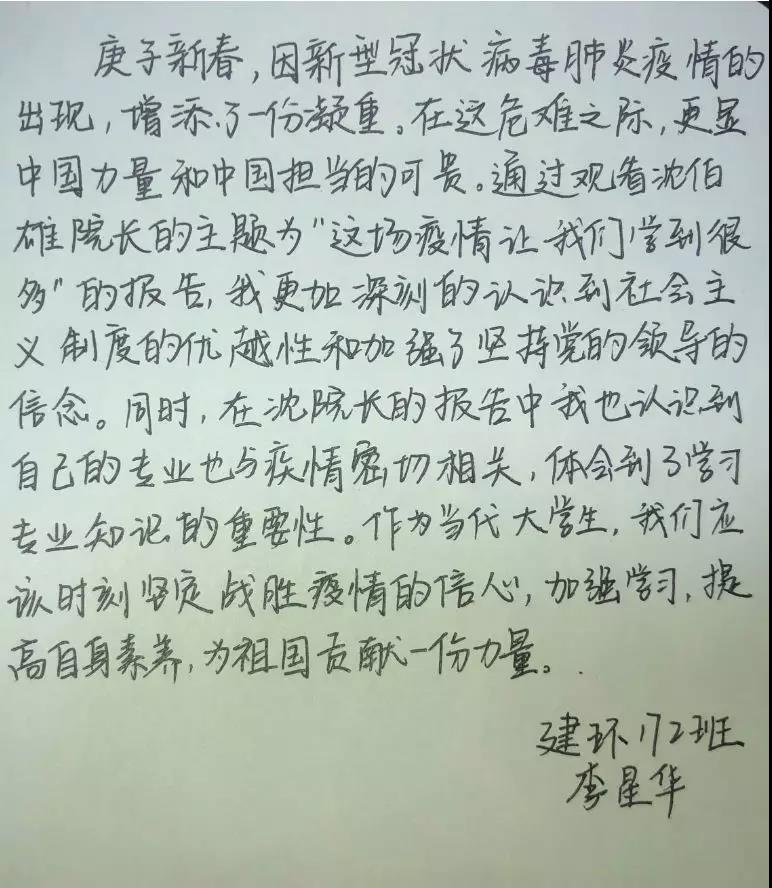 庚子新春，因新型冠状病毒肺炎疫情的
出现，增添了一份凝重。在这危难之际，更显
中国力量和中国担当的可贵。通过观看沈伯
雄院长的主题为“这场疫情让我们学到很
多”的报告，我更加深刻的认识到社会主
义制度的优越性和加强了坚持党的领导的
信念。同时，在沈院长的报告中我也认识到
自己的专业也与疫情密切相关，体会到了学习
专业知识的重要性。作为当代大学生，我们应
该时刻坚定战胜疫情的信心，加强学习，提
高自身素养，为祖国贡献一份力量。
建环172班
李星华